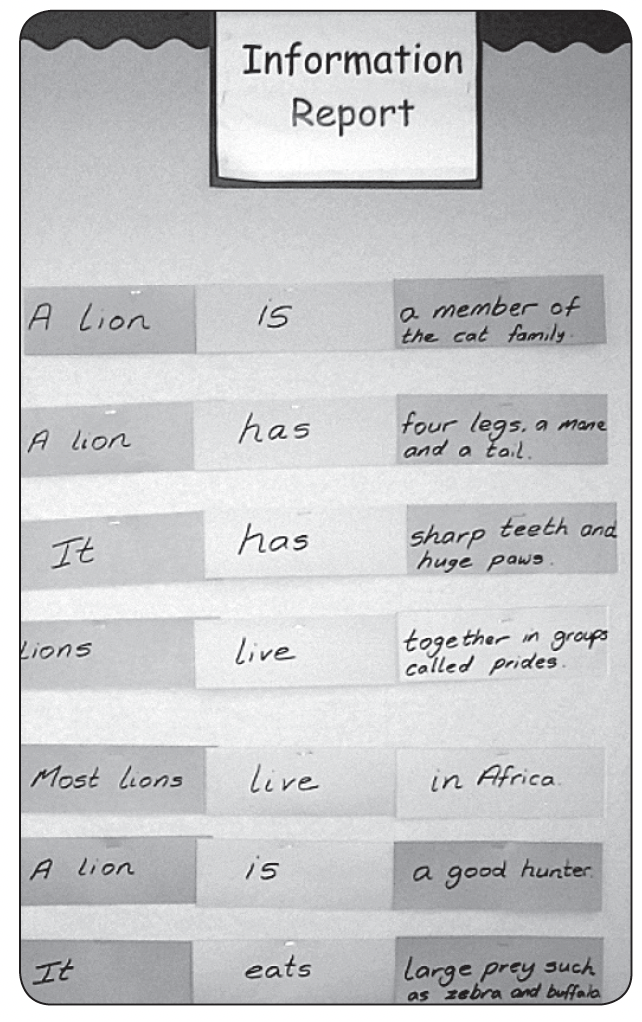 Information
Report
A lion is a member of
the cat family.
A lion has four legs, a mane
and a tail.
It has sharp teeth and
huge paws.
Lions live together in groups
called prides.
Most lions live in Africa.
A lion is a good hunter.
It eats large prey such
as zebra and buffalo